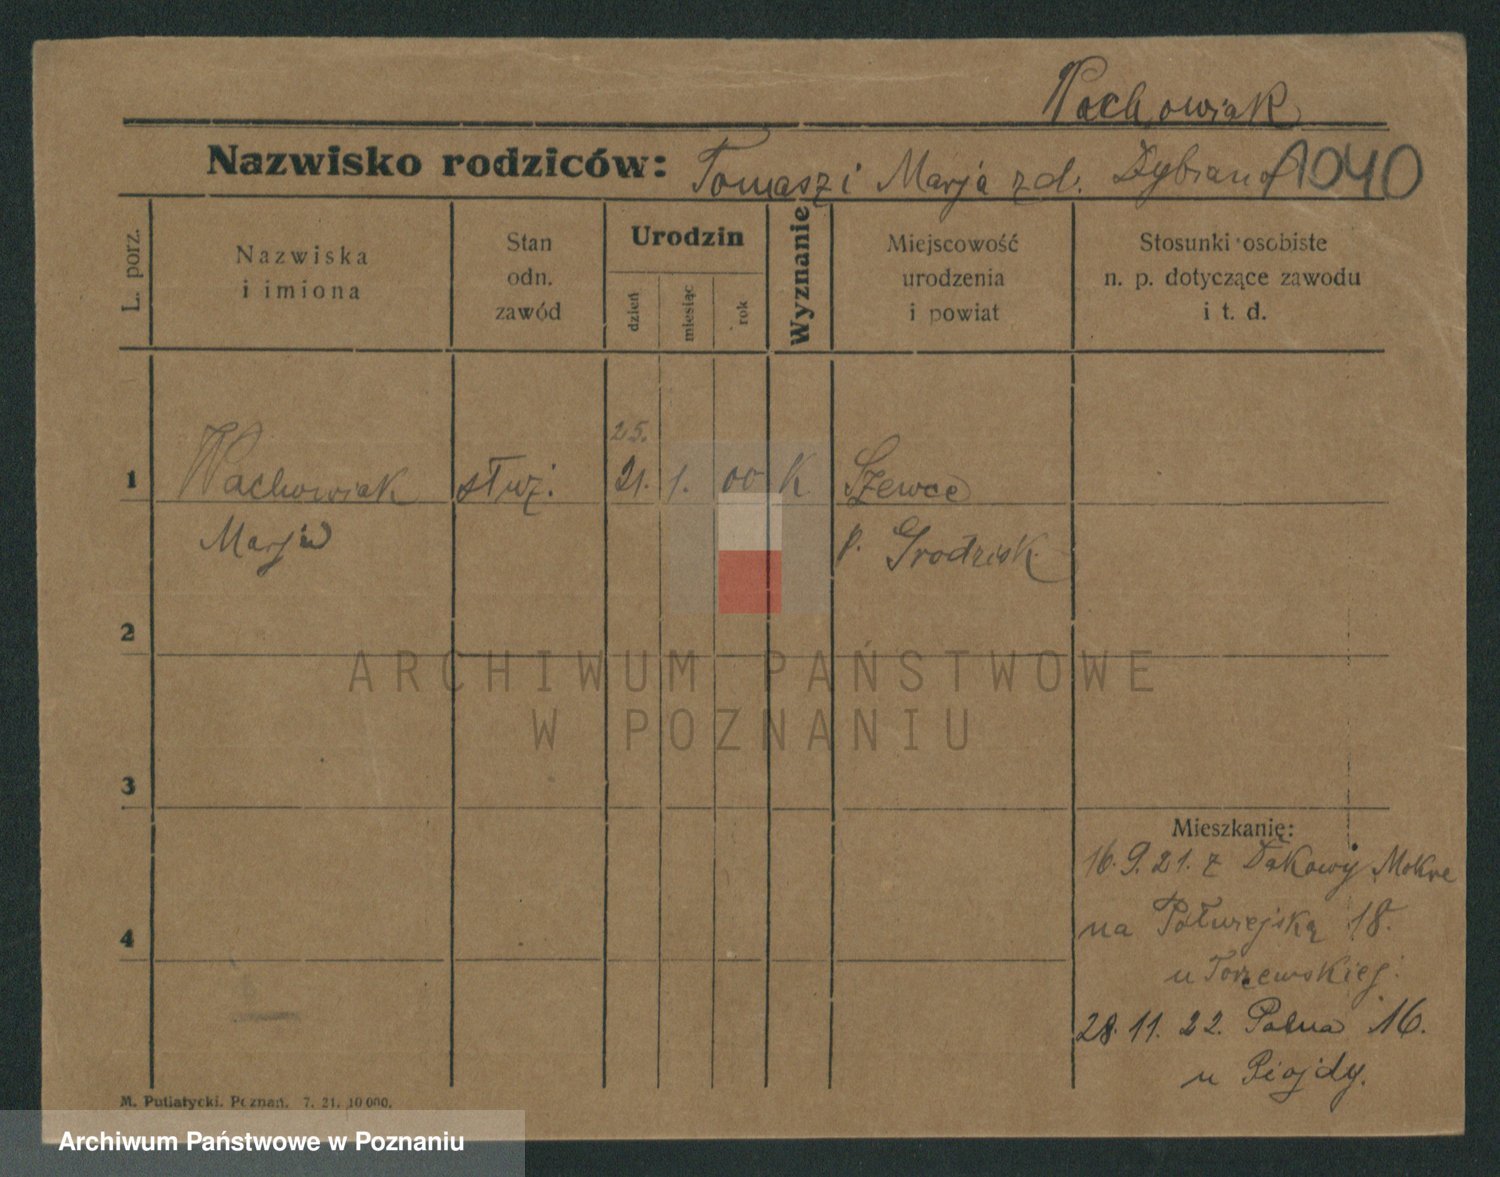 Wachowiak
Nazwisko rodziców: Tomasz i Marja zd. 1040
L. porz.
Nazwiska
i imiona
Stan
odn.
zawód
Urodzin
dzień
miesiąc
rok
Wyznanie
Miejscowość
urodzenia
i powiat
Stosunki osobiste
n. p. dotyczące zawodu
i t. d.
25.
1 Wachowiak służ. 21. 1. 00 K Szewce
Marja p. Grodzisk
2
ARCHIWUM PAŃSTWOWE
W POZNANIU
3
Mieszkanie:
16.9.21. z Dakowy Mokre
na Półwiejską 18.
u
4
28.11.22. Polna 16.
u
M. Putiatycki. Poznań. 7. 21. 10 000.
Archiwum Państwowe w Poznaniu